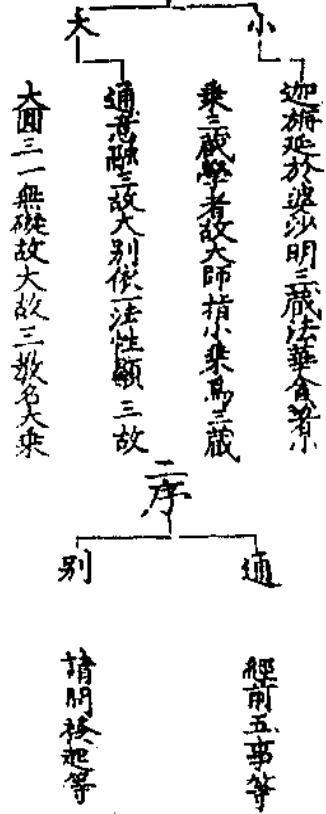 小
迦旃延於婆沙明三藏法華會著小
乘三藏學者故大師指小乘為三藏
大
通意融三故大別依一法性顯三故
大圓三一無礙故大故三教名大乘
二序
通
經前五事等
別
請問發起等